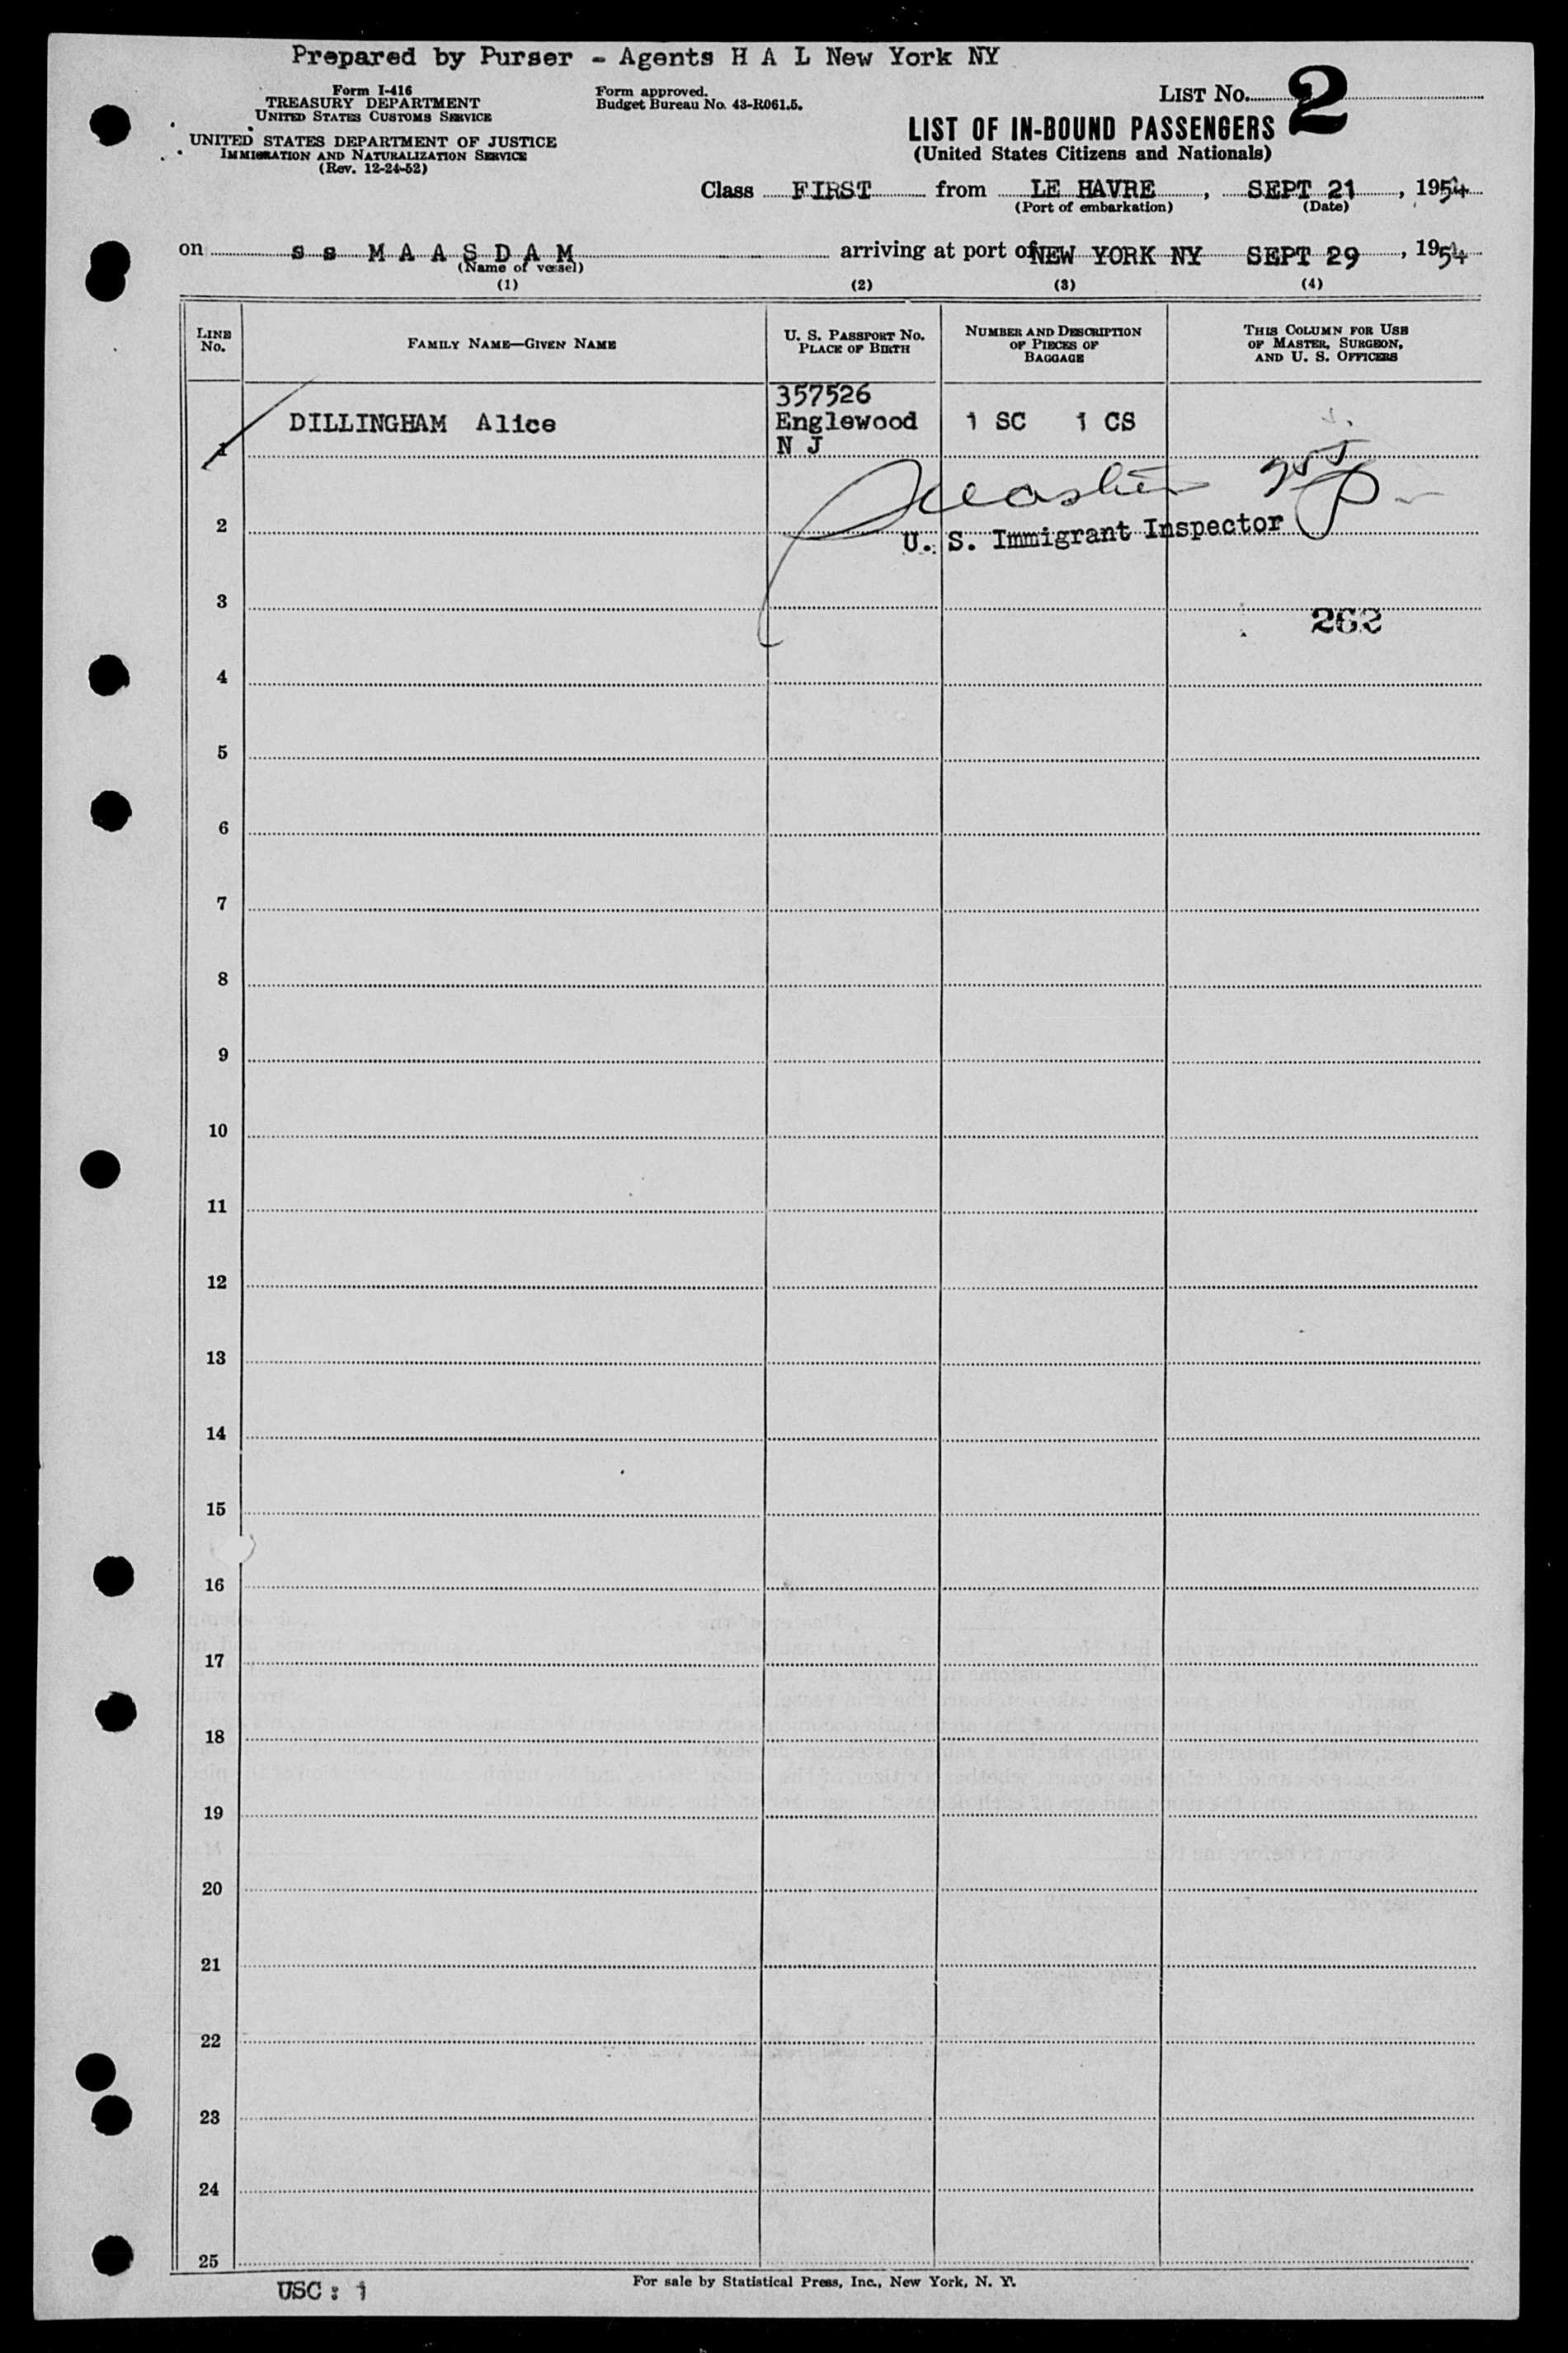 Prepared by Purser - Agents H A L New York NY
Form I-416
TREASURY DEPARTMENT
UNITED STATES CUSTOMS SERVICE
UNITED STATES DEPARTMENT OF JUSTICE
IMMIGRATION AND NATURALIZATION SERVICE
(Rev. 12-24-52)
Form approved.
Budget Bureau No. 43-R061.5.
LIST No. 2
LIST OF IN-BOUND PASSENGERS
(United States Citizens and Nationals)
Class FIRST from LE HAVRE, SEPT 21, 1954
(Port of embarkation) (Date)
on s s M A A S D A M arriving at port of NEW YORK NY SEPT 29, 1954
(Name of vessel)
(1) (2) (3) (4)
LINE No.
FAMILY NAME—GIVEN NAME
U. S. PASSPORT No.
PLACE OF BIRTH
NUMBER AND DESCRIPTION
OF PIECES OF
BAGGAGE
THIS COLUMN FOR USE
OF MASTER, SURGEON,
AND U. S. OFFICERS
357526
DILLINGHAM Alice Englewood 1 SC 1 CS
1 N J
2 U. S. Immigrant Inspector
3
262
4
5
6
7
8
9
10
11
12
13
14
15
16
17
18
19
20
21
22
23
24
25
USC : 1
For sale by Statistical Press, Inc., New York, N. Y.